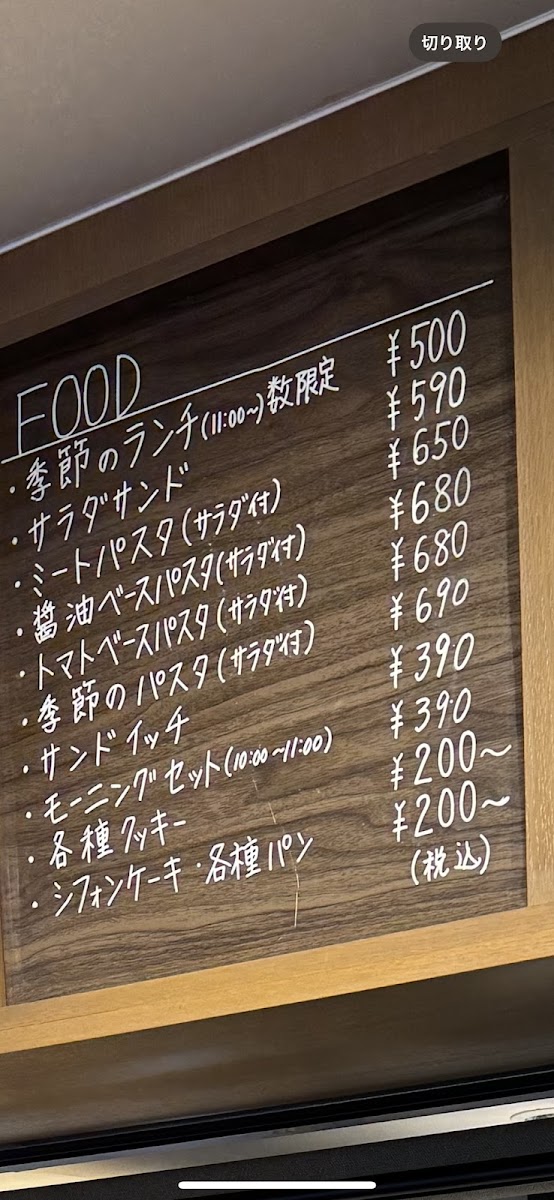 切り取り
FOOD
・季節のランチ(11:00~)数限定 ¥500
・サラダサンド ¥590
・ミートパスタ(サラダ付) ¥650
・醤油ベースパスタ(サラダ付) ¥680
・トマトベースパスタ(サラダ付) ¥680
・季節のパスタ(サラダ付) ¥690
・サンドイッチ ¥390
・モーニングセット(10:00~11:00) ¥390
・各種クッキー ¥200~
・シフォンケーキ・各種パン ¥200~
(税込)